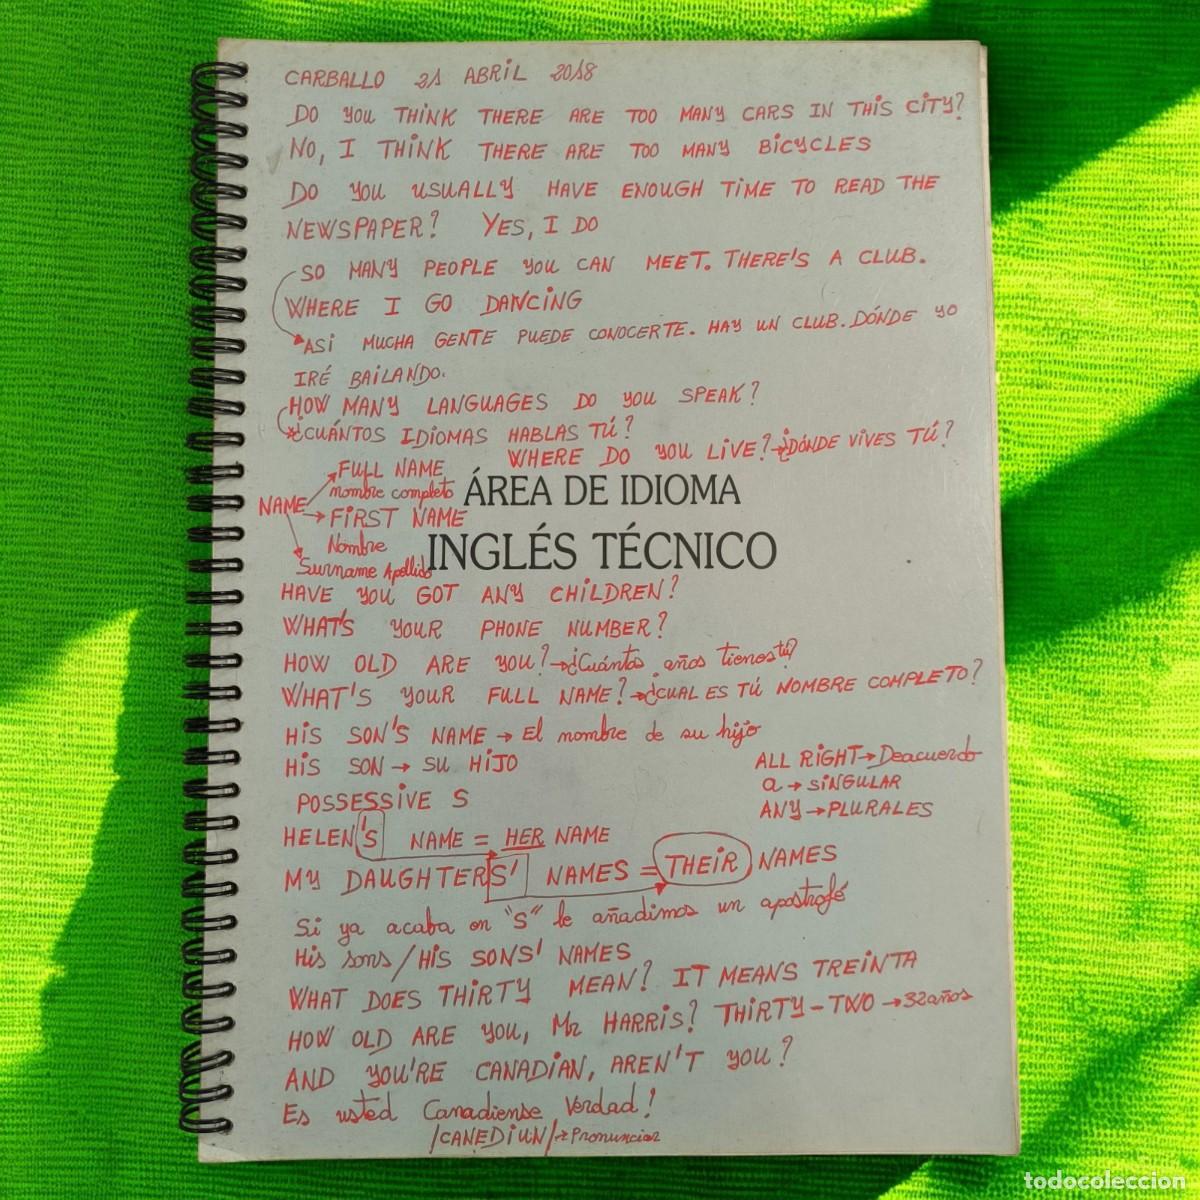 CARBALLO 21 ABRIL 2018
DO YOU THINK THERE ARE TOO MANY CARS IN THIS CITY?
NO, I THINK THERE ARE TOO MANY BICYCLES
DO YOU USUALLY HAVE ENOUGH TIME TO READ THE
NEWSPAPER? YES, I DO
SO MANY PEOPLE YOU CAN MEET. THERE'S A CLUB.
WHERE I GO DANCING
ASI MUCHA GENTE PUEDE CONOCERTE. HAY UN CLUB. DÓNDE YO
IRÉ BAILANDO.
HOW MANY LANGUAGES DO YOU SPEAK?
¿CUÁNTOS IDIOMAS HABLAS TÚ?
WHERE DO YOU LIVE? → ¿DÓNDE VIVES TÚ?
FULL NAME
nombre completo
NAME
FIRST NAME
Nombre
Surname Apellido
ÁREA DE IDIOMA
INGLÉS TÉCNICO
HAVE YOU GOT ANY CHILDREN?
WHAT'S YOUR PHONE NUMBER?
HOW OLD ARE YOU? → ¿Cuántos años tienes tú?
WHAT'S YOUR FULL NAME? → ¿CUAL ES TÚ NOMBRE COMPLETO?
HIS SON'S NAME → El nombre de su hijo
HIS SON → SU HIJO
ALL RIGHT → Deacuerdo
a → SINGULAR
ANY → PLURALES
POSSESSIVE S
HELEN'S NAME = HER NAME
MY DAUGHTERS' NAMES = THEIR NAMES
Si ya acaba en "S" le añadimos un apostrofé
His sons / HIS SONS' NAMES
WHAT DOES THIRTY MEAN? IT MEANS TREINTA
HOW OLD ARE YOU, Mr HARRIS? THIRTY-TWO → 32 años
AND YOU'RE CANADIAN, AREN'T YOU?
Es usted Canadiense Verdad?
/CANEDIUN/ → Pronunciar
todocoleccion